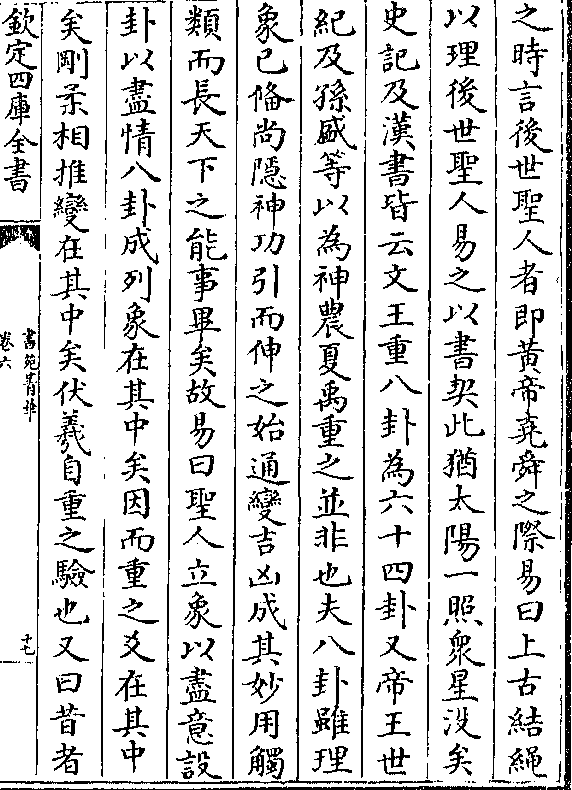 之時言後世聖人者即黃帝堯舜之際易曰上古結繩
以理後世聖人易之以書契此猶太陽一照衆星没矣
史記及漢書皆云文王重八卦為六十四卦又帝王世
紀及孫盛等以為神農夏禹重之並非也夫八卦雖理
象已偹尚隱神功引而伸之始通變吉凶成其妙用觸
類而長天下之能事畢矣故易曰聖人立象以盡意設
卦以盡情八卦成列象在其中矣因而重之爻在其中
矣剛柔相推變在其中矣伏羲自重之驗也又曰昔者
欽定四庫全書
書苑菁華
卷六
十七